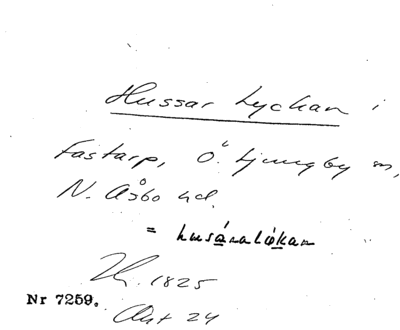 Hussar Lyckan i
Fastarp, Ö. Ljungby sn,
N. Åsbo hd.
= husáraliøkan
1825
Nr 7259. Akt 24